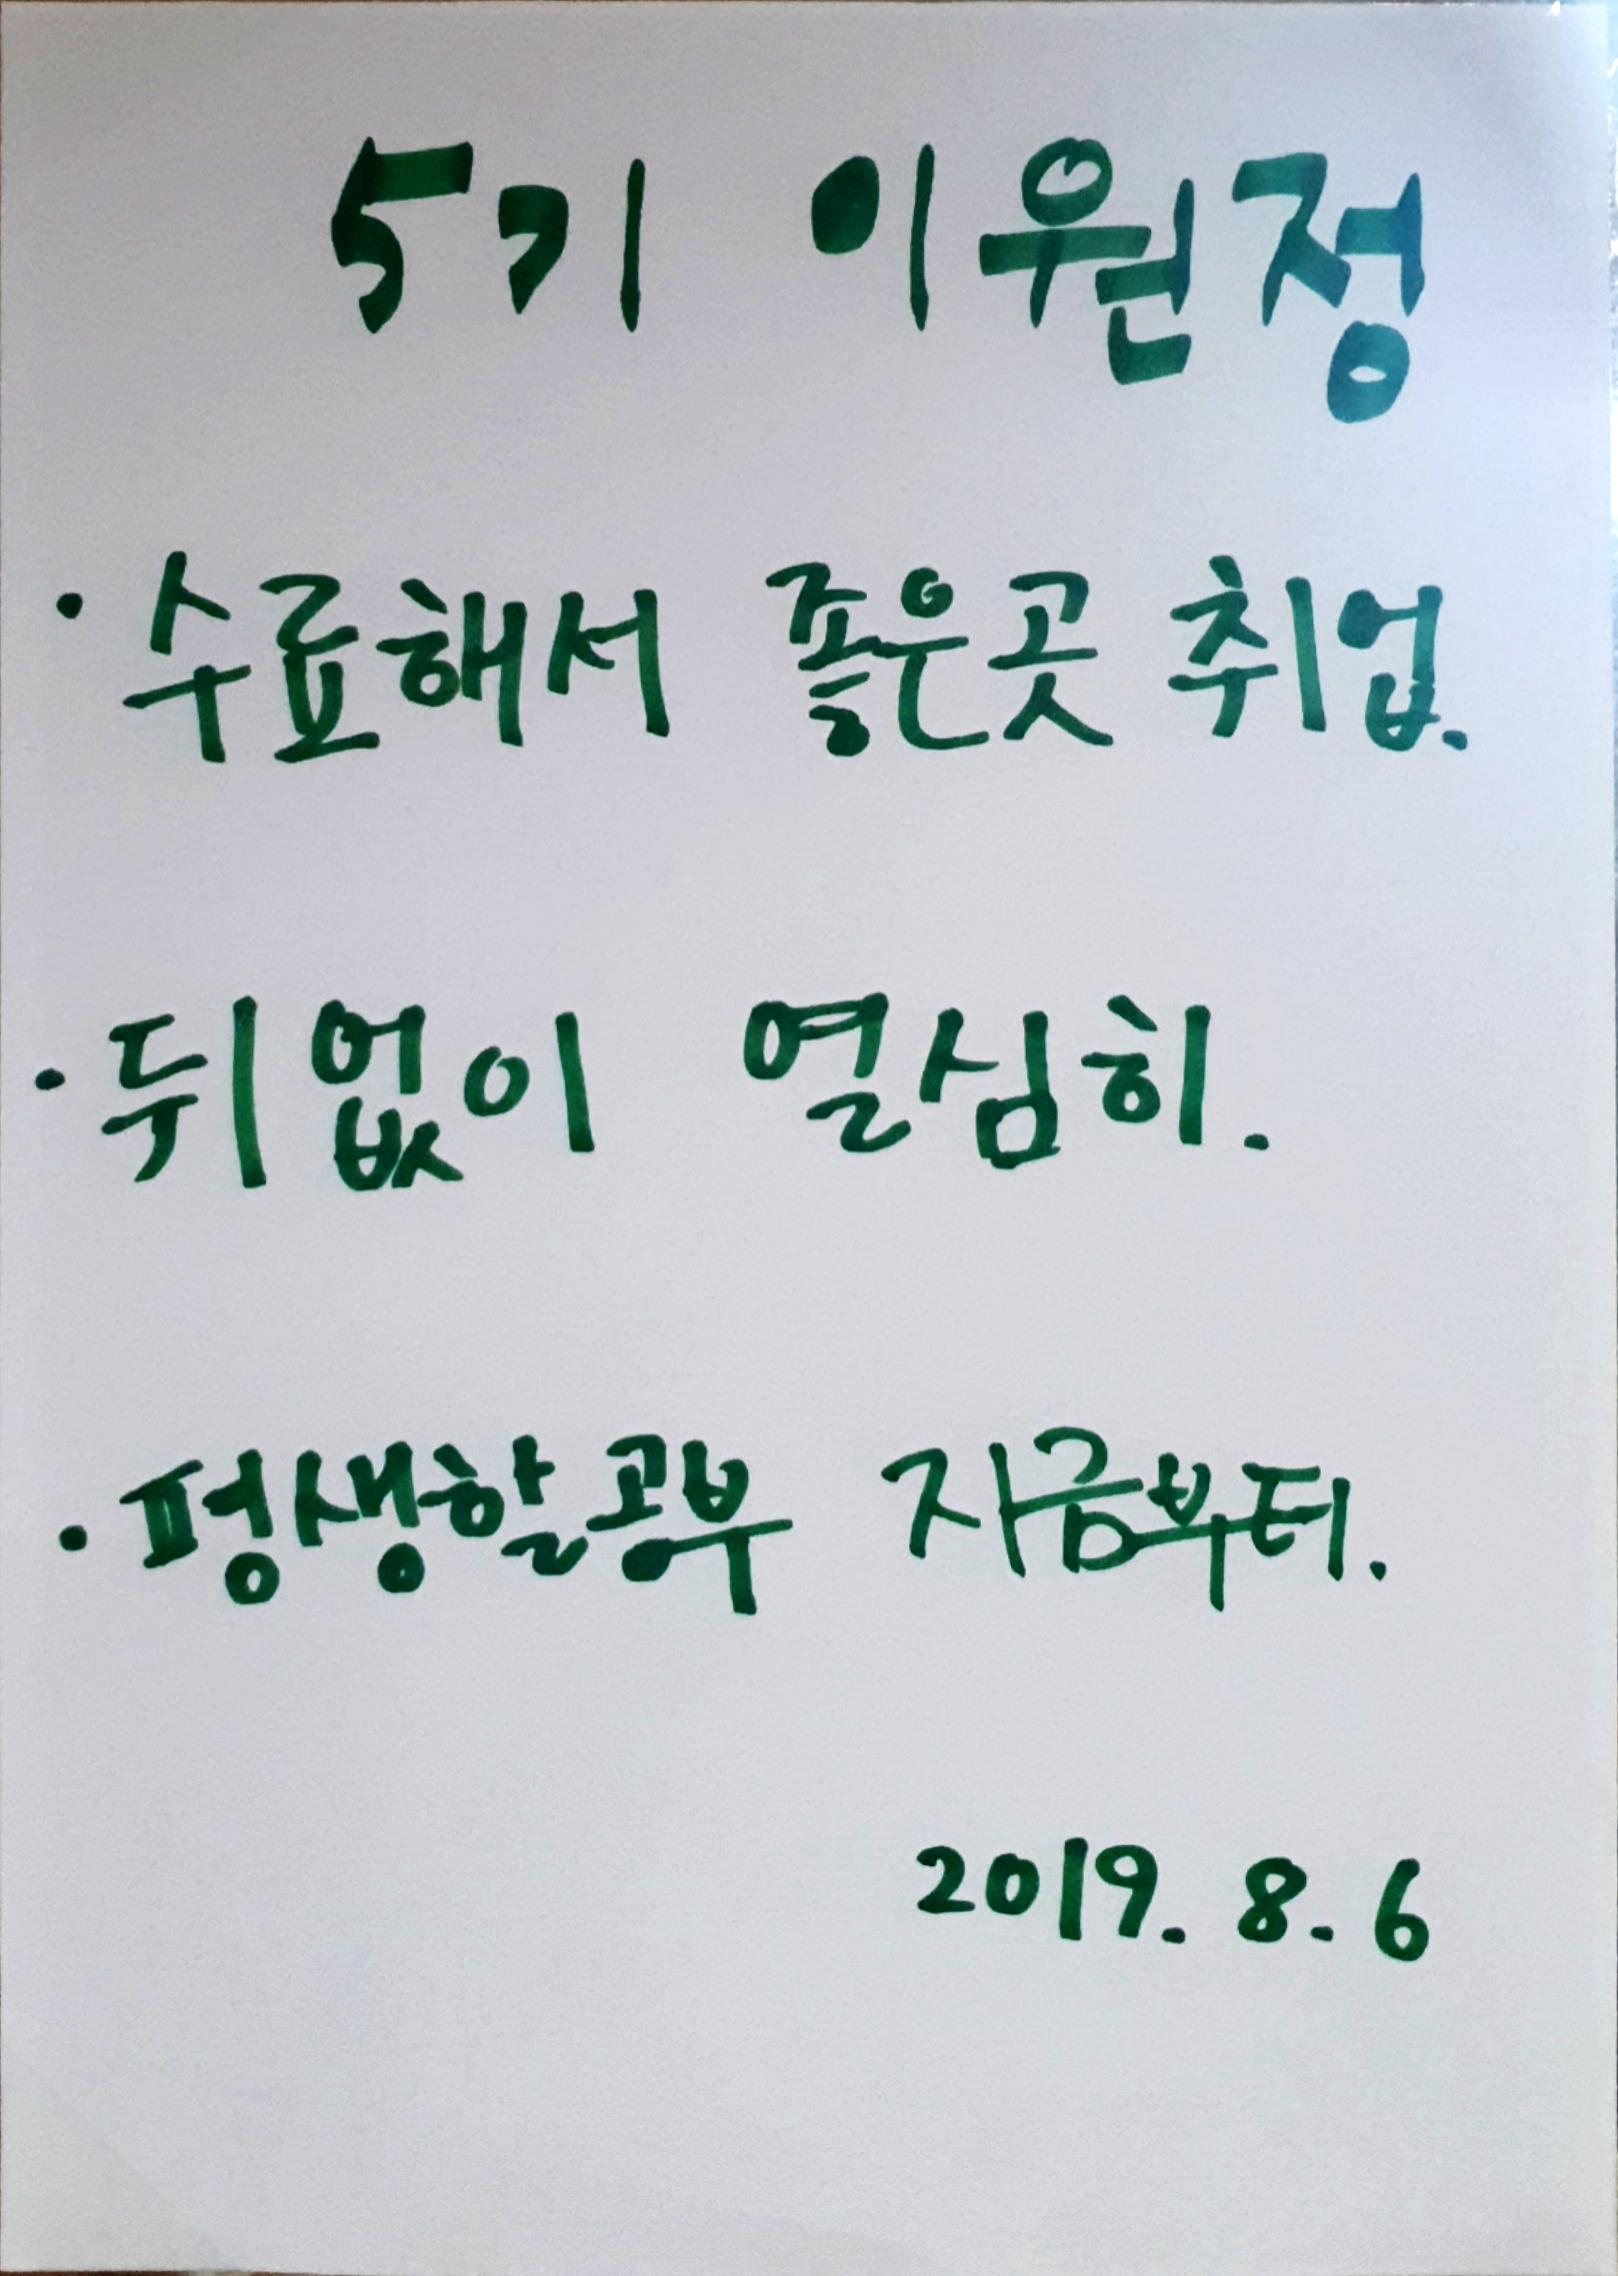 5기 이원정
· 수료해서 좋은곳 취업.
· 뒤없이 열심히.
· 평생할공부 지금부터.
2019. 8. 6